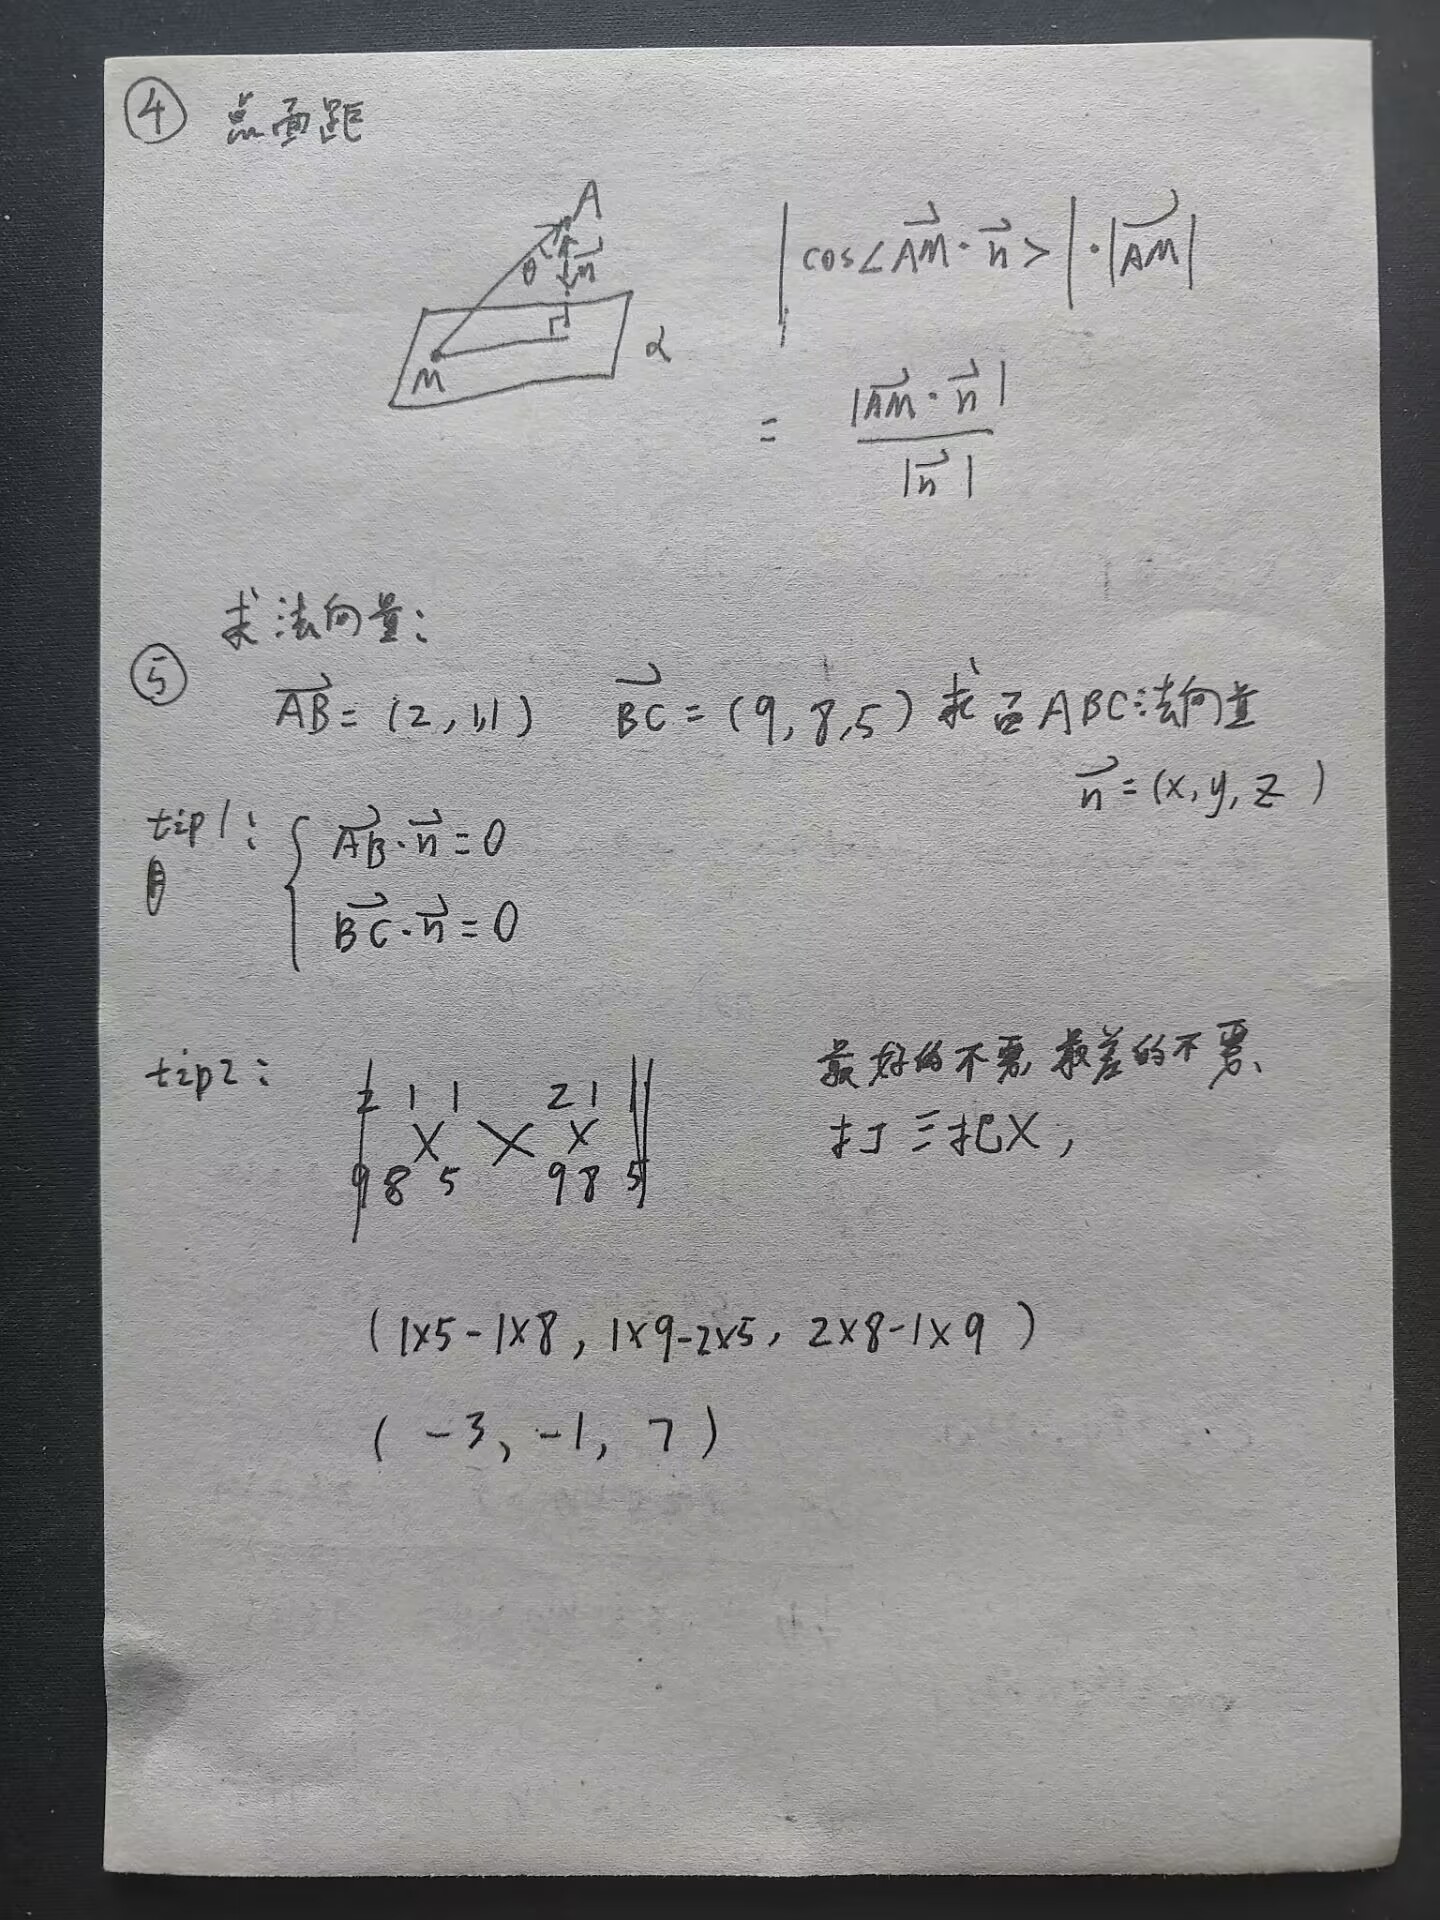 ④ 点面距
A
θ n⃗
M
α
|cos<AM⃗·n⃗>|·|AM⃗|
= |AM⃗·n⃗| / |n⃗|
求法向量:
⑤ AB⃗=(2,1,1) BC⃗=(9,8,5) 求面ABC法向量
n⃗=(x,y,z)
tip1: { AB⃗·n⃗=0
BC⃗·n⃗=0
tip2:
2 1 1 2 1 1
X X X
9 8 5 9 8 5
最好的不要,最差的不要、
打三把X,
(1×5-1×8, 1×9-2×5, 2×8-1×9)
(-3, -1, 7)